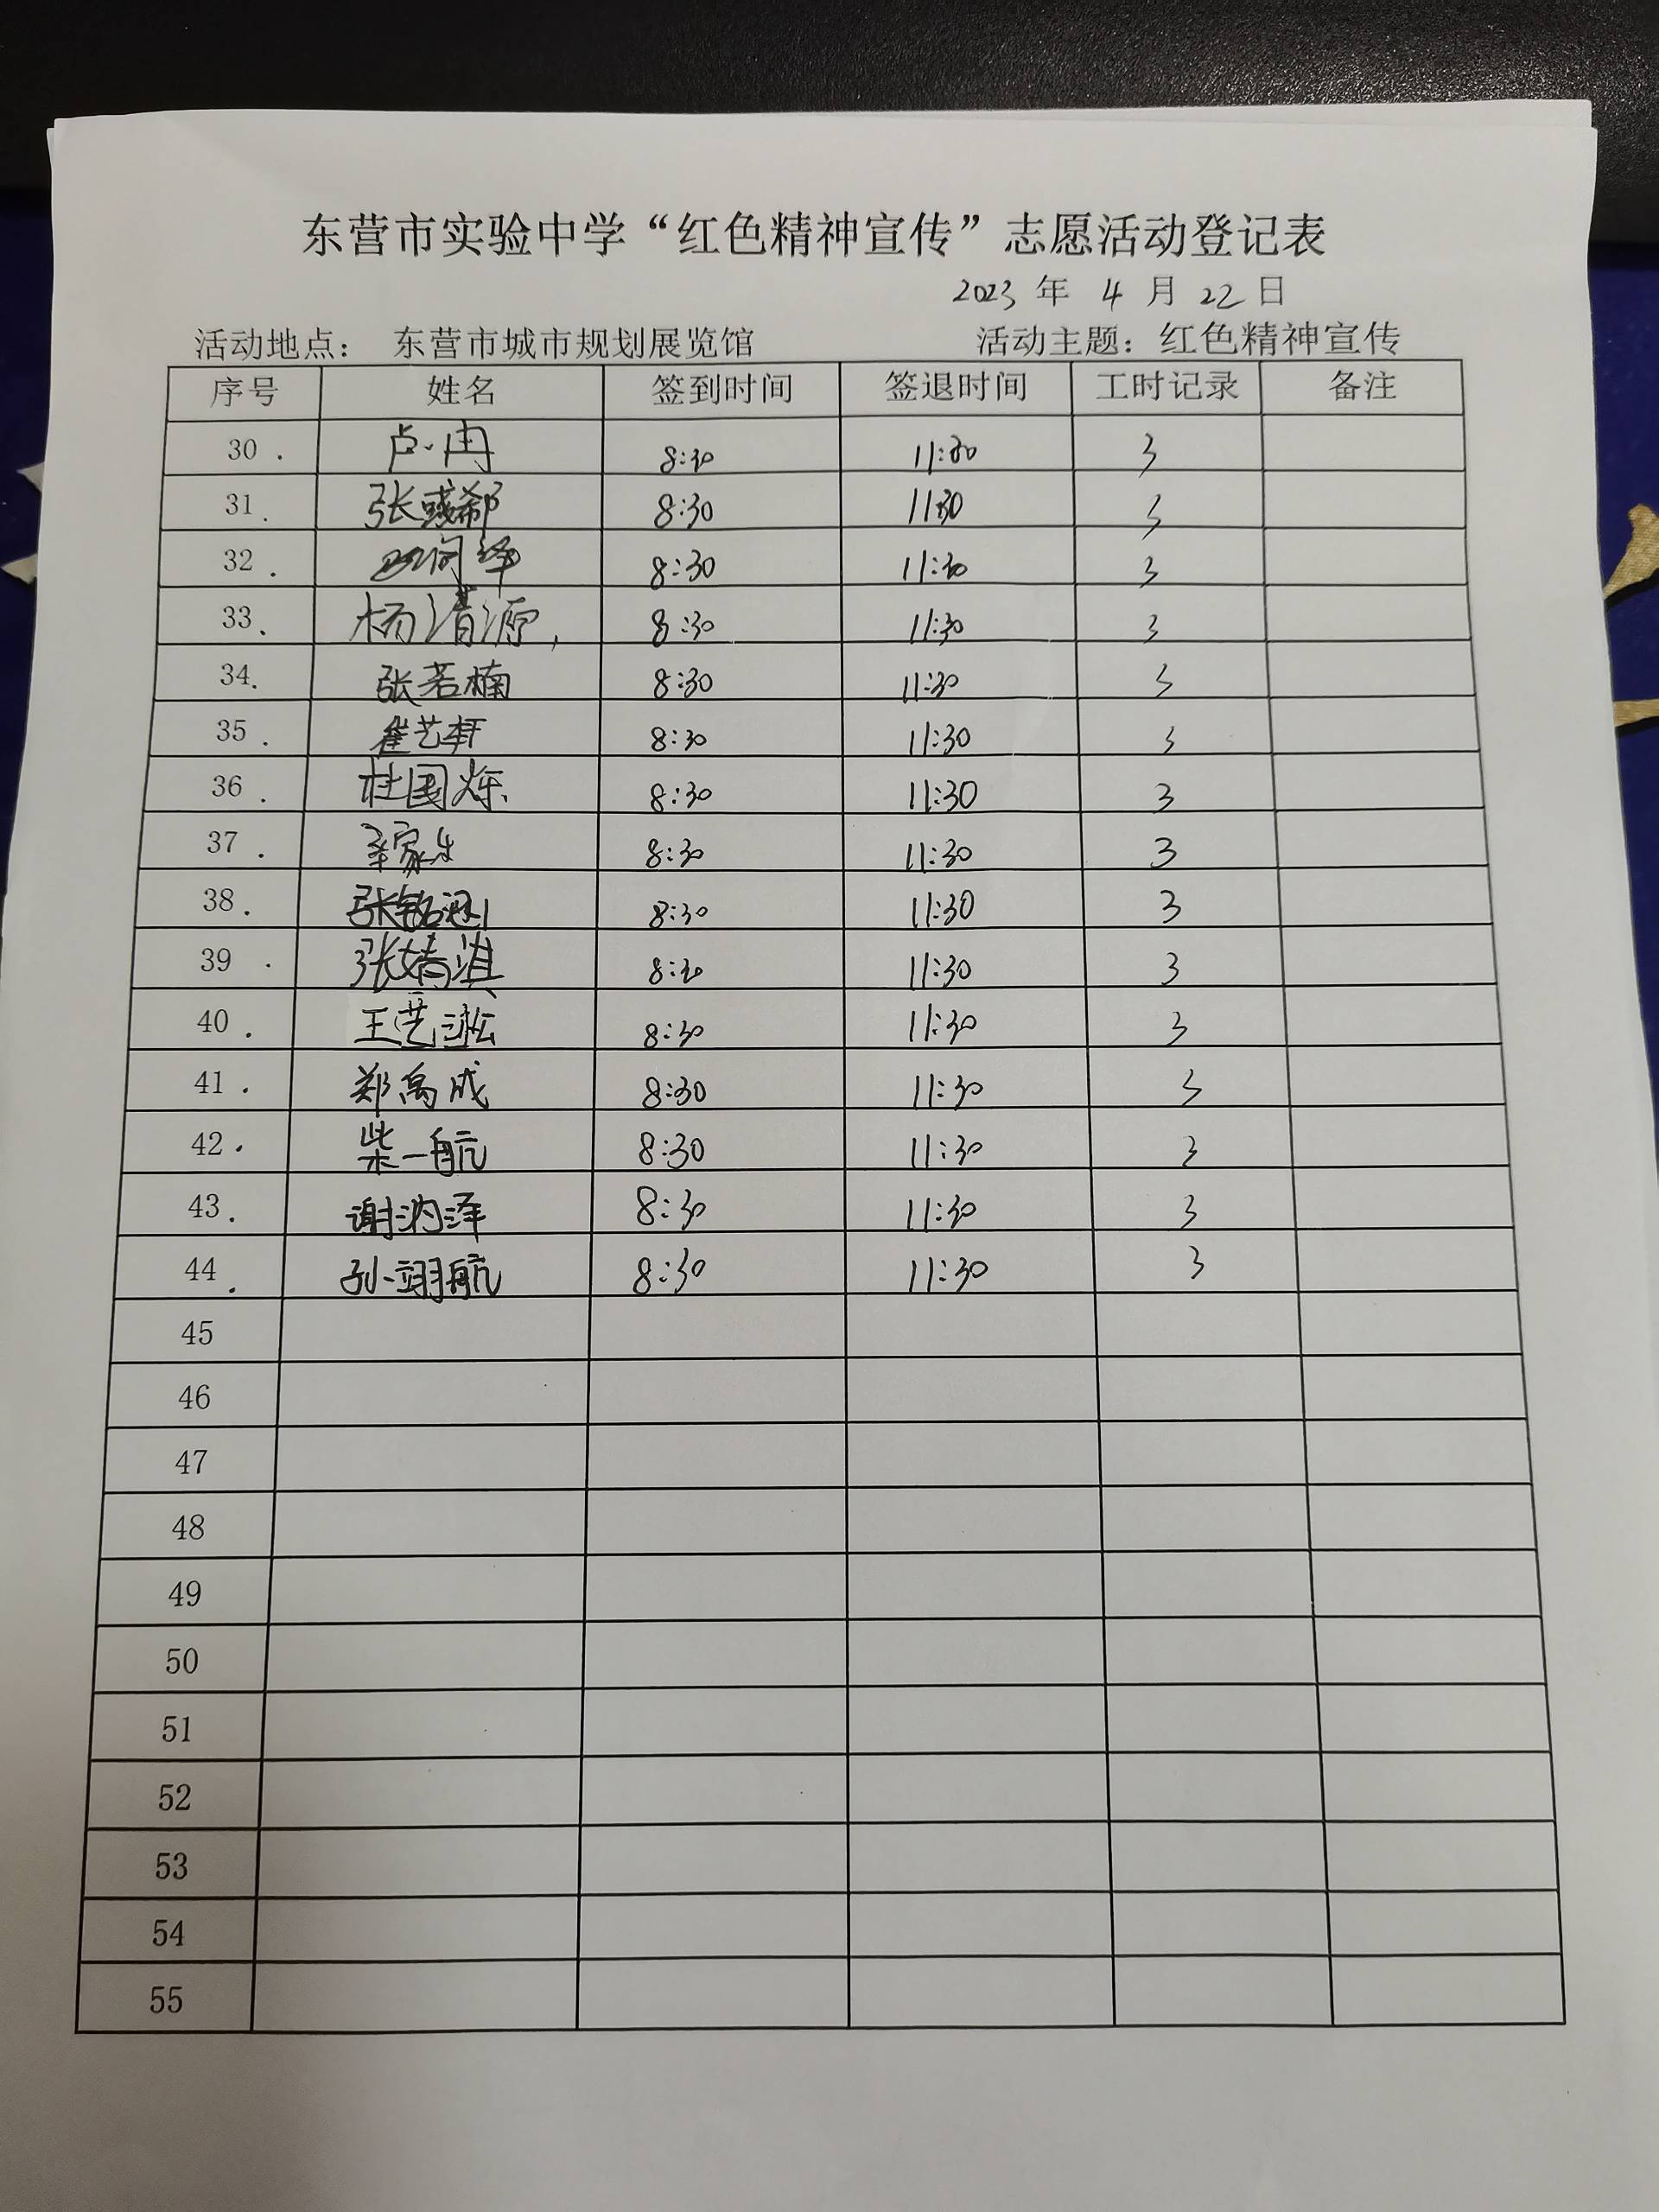 东营市实验中学“红色精神宣传”志愿活动登记表
2023 年 4 月 22 日
活动地点： 东营市城市规划展览馆 活动主题：红色精神宣传
序号 姓名 签到时间 签退时间 工时记录 备注
30 . 卢冉 8:30 11:30 3
31 . 张彧郗 8:30 11:30 3
32 . 8:30 11:30 3
33 . 杨清源 8:30 11:30 3
34 . 张若楠 8:30 11:30 3
35 . 崔艺轩 8:30 11:30 3
36 . 杜国烁 8:30 11:30 3
37 . 辛家乐 8:30 11:30 3
38 . 8:30 11:30 3
39 . 张婧淇 8:30 11:30 3
40 . 王艺淞 8:30 11:30 3
41 . 郑禹成 8:30 11:30 3
42 . 柴一航 8:30 11:30 3
43 . 谢汭泽 8:30 11:30 3
44 . 孙翊航 8:30 11:30 3
45
46
47
48
49
50
51
52
53
54
55